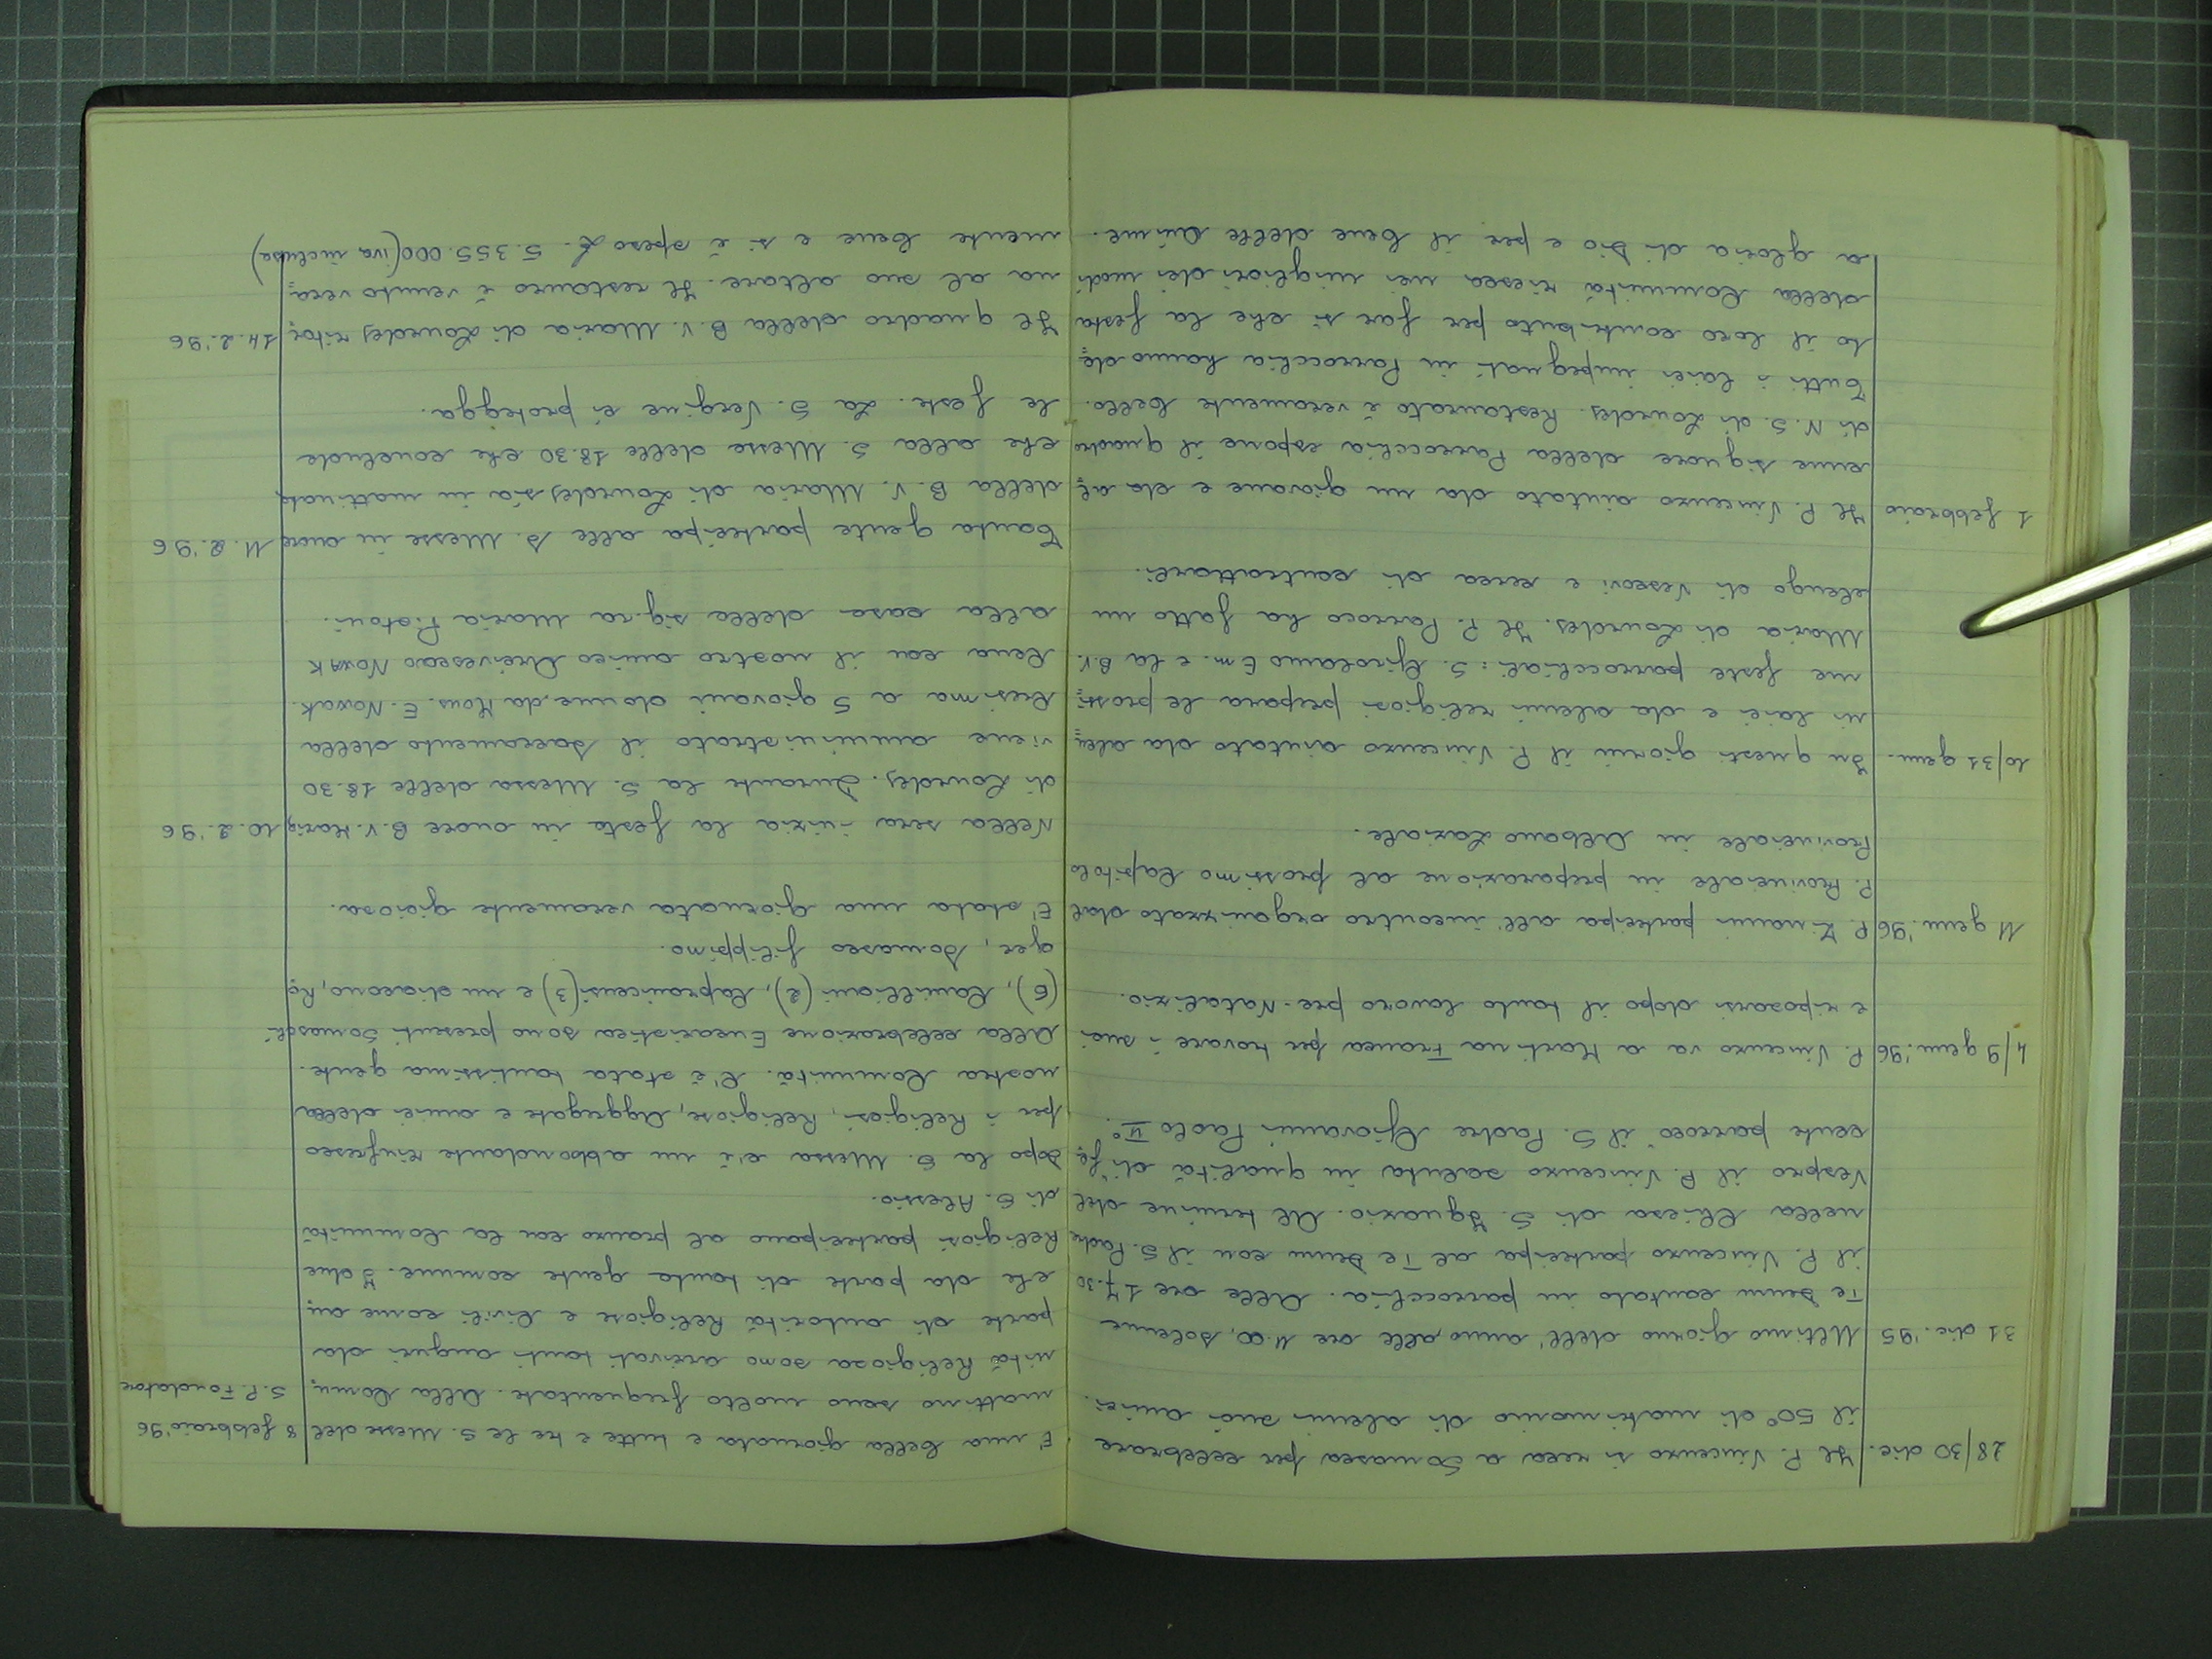 28/30 dic. Il P. Vincenzo si reca a Somasca per celebrare
il 50° di matrimonio di alcuni suoi amici.
31 dic. '95 Ultimo giorno dell'anno, alle ore 11.00, solenne
Te Deum cantato in parrocchia. Alle ore 17.30
il P. Vincenzo partecipa al Te Deum con il S. Padre
nella Chiesa di S. Ignazio. Al termine del
Vespro il P. Vincenzo saluta in qualità di "fa
cente parroco" il S. Padre Giovanni Paolo II°.
4/9 genn. '96 P. Vincenzo va a Martina Franca per trovare i suoi
e riposarsi dopo il tanto lavoro pre-Natalizio.
11 genn. '96 P. Zinanni partecipa all'incontro organizzato dal
P. Provinciale in preparazione al prossimo Capitolo
Provinciale in Albano Laziale.
10/31 genn. In questi giorni il P. Vincenzo aiutato da alcu
ni laici e da alcuni religiosi prepara le prossi
me feste parrocchiali: S. Girolamo Em. e la B.V.
Maria di Lourdes. Il P. Parroco ha fatto un
elengo di Vescovi e cerca di contattarli.
1 febbraio Il P. Vincenzo aiutato da un giovane e da al
cune signore della Parrocchia espone il quadro
di N. S. di Lourdes. Restaurato è veramente bello.
Tutti i laici impegnati in Parrocchia hanno da
to il loro contributo per far sì che la festa
della Comunità riesca nei migliori dei modi
a gloria di Dio e per il bene delle Anime.
E' una bella giornata e tutte e tre le S. Messe del 8 febbraio '96
mattino sono molto frequentate. Alla Comu S. P. Fondatore
nità Religiosa sono arrivati tanti auguri da
parte di autorità Religiose e Civili come an
che da parte di tanta gente comune. I due
Religiosi partecipano al pranzo con la Comunità
di S. Alessio.
Dopo la S. Messa c'è un abbondante rinfresco
per i Religiosi, Religiose, Aggregate e amici della
nostra Comunità. C'è stata tantissima gente.
Alla celebrazione Eucaristica sono presenti Somaschi
(6), Camilliani (2), (3) e un diacono, Ro
ger, Somasco filippino.
E' stata una giornata veramente gioiosa.
Nella sera inizia la festa in onore B.V. Maria 10.2.'96
di Lourdes. Durante la S. Messa delle 18.30
viene amministrato il Sacramento della
Cresima a 5 giovani donne, da Mons. E. Nowak.
Cena con il nostro amico Arcivescovo Nowak
alla casa della sig.ra Maria Pistoni.
Tanta gente partecipa alle S. Messe in onore 11.2.'96
della B. V. Maria di Lourdes sia in mattinata
che alla S. Messe delle 18.30 che conclude
le feste. La S. Vergine ci protegga.
Il quadro della B. V. Maria di Lourdes ritor 14.2.'96
na al suo altare. Il restauro è venuto vera
mente bene e si è speso £. 5.355.000 (iva inclusa)